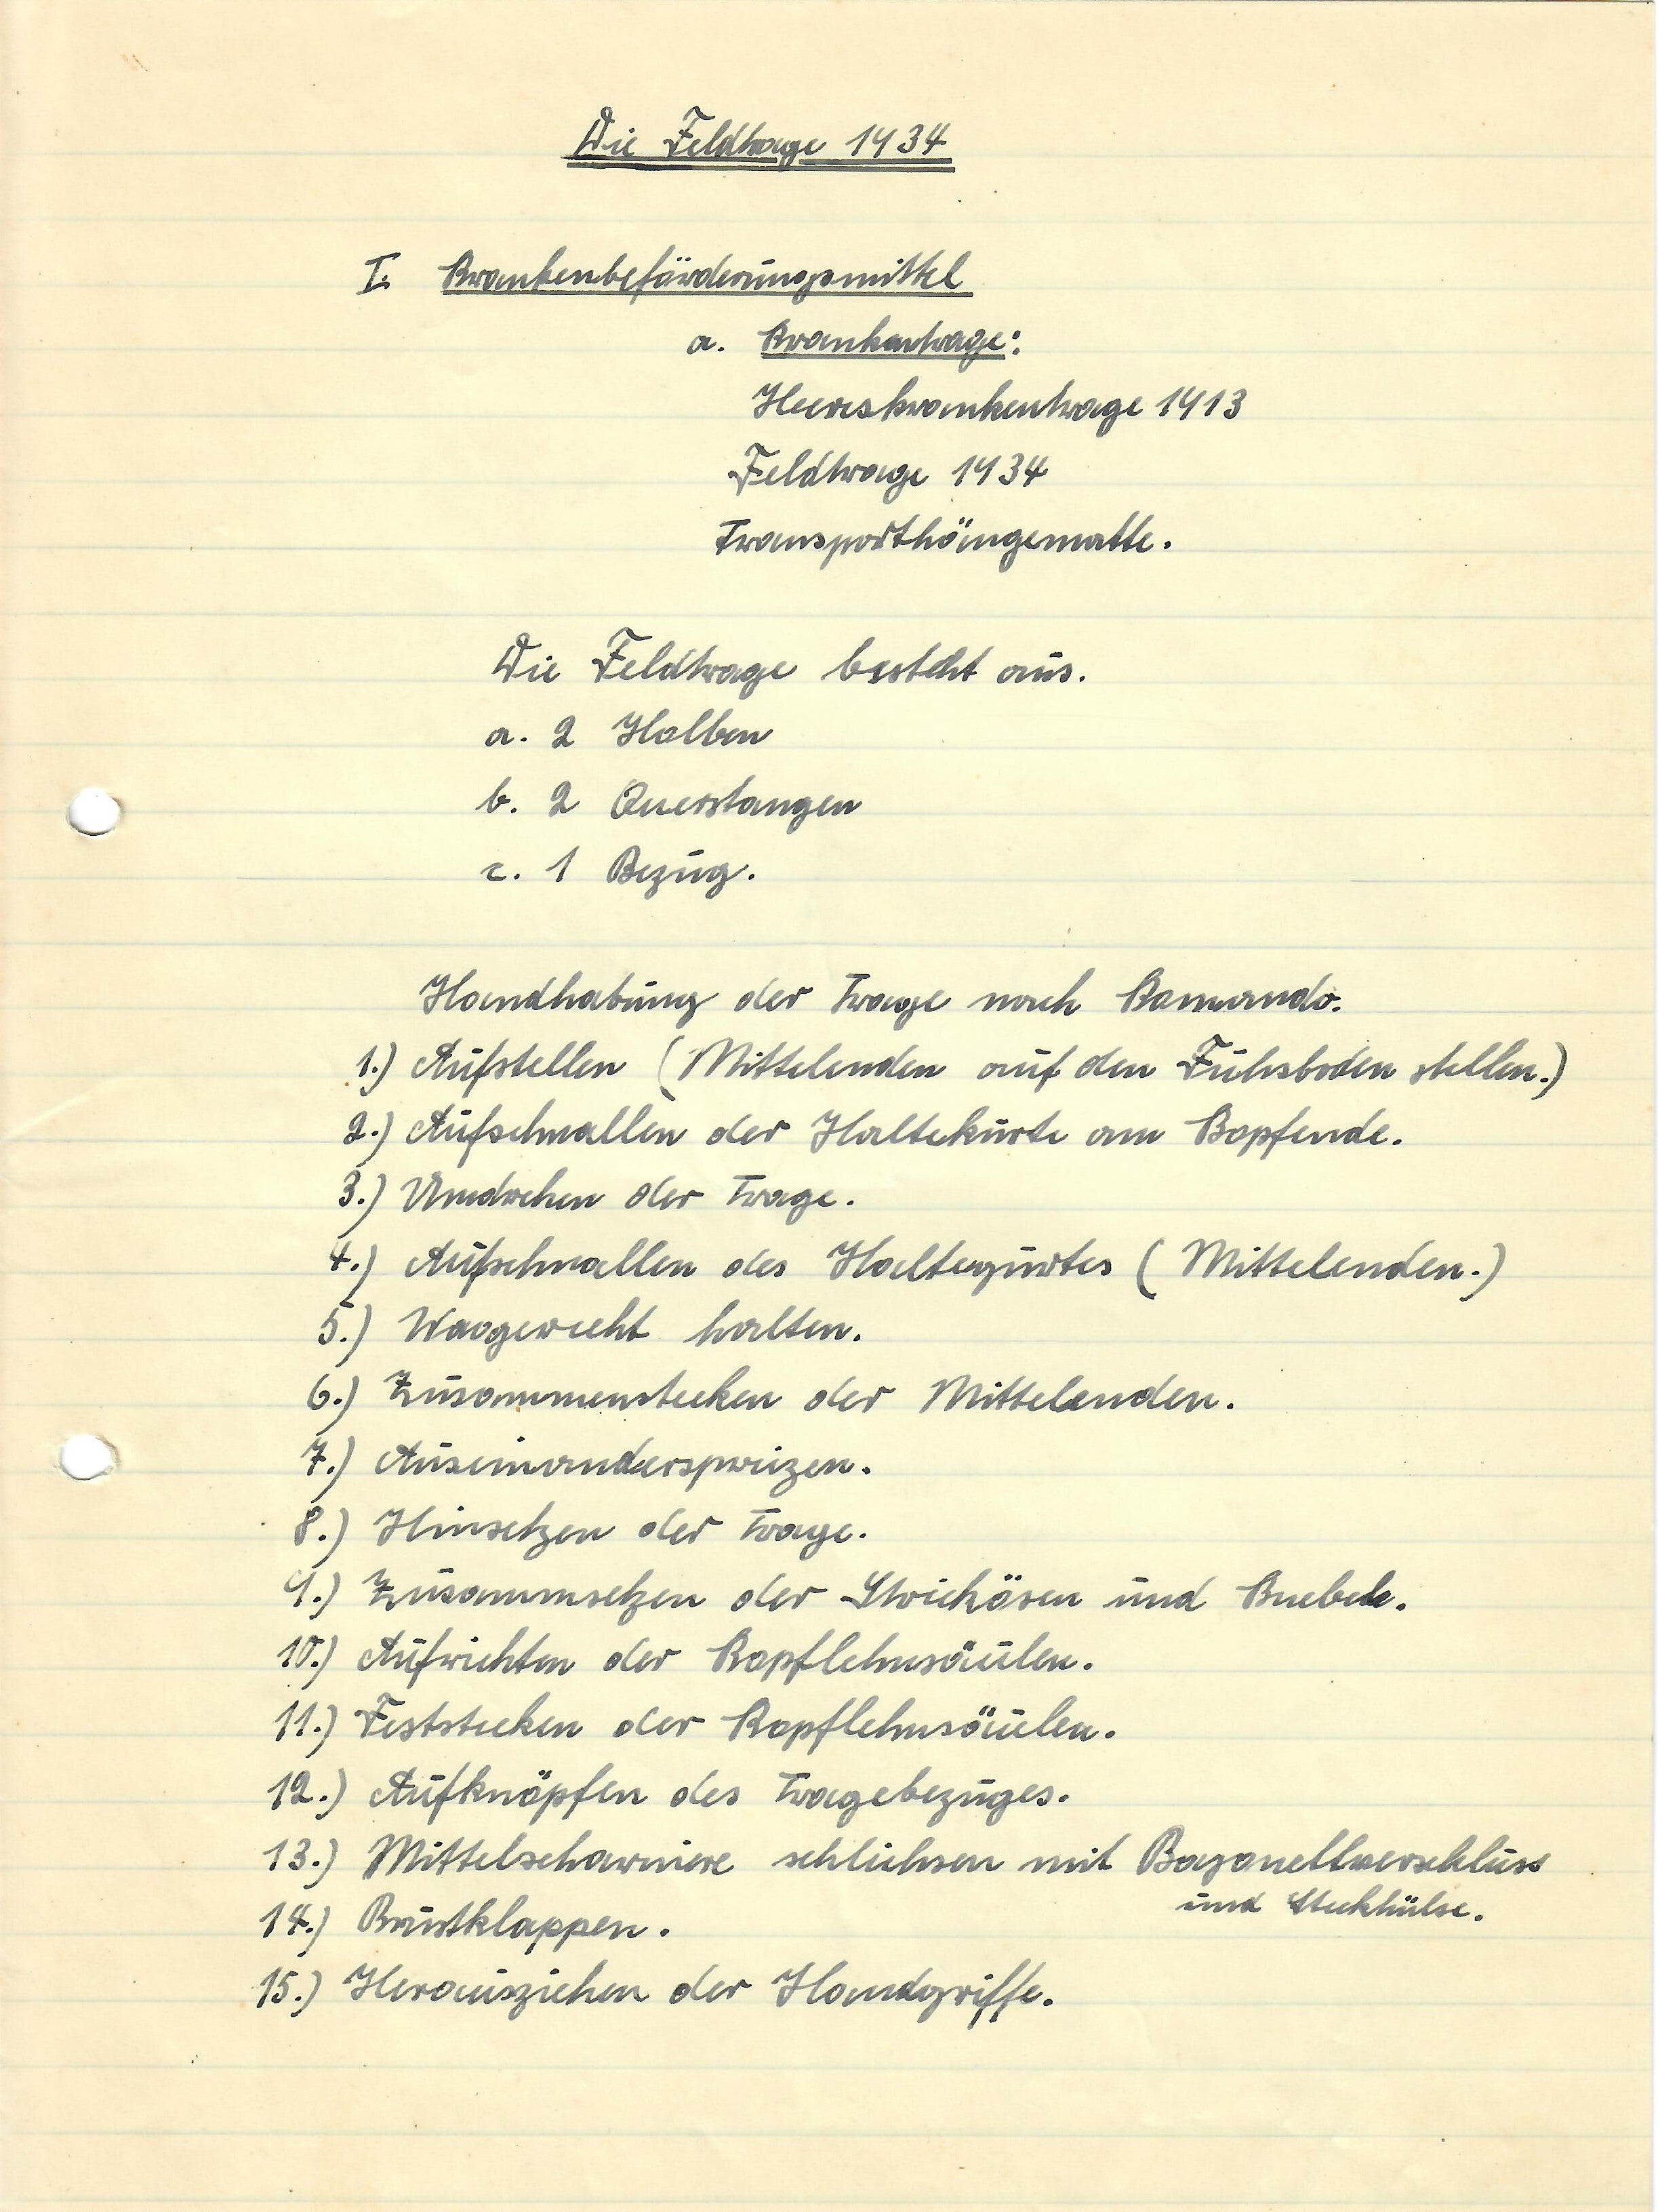 Die Feldtrage 1934
I. Krankenbeförderungsmittel
a. Krankentrage:
Heereskrankentrage 1913
Feldtrage 1934
Transporthängematte.
Die Feldtrage besteht aus.
a. 2 Holben
b. 2 Querstangen
c. 1 Bezug.
Handhabung der Trage nach Komando.
1.) Aufstellen (Mittelenden auf den Fuhsboden stellen.)
2.) Aufschnallen der Haltekurte am Kopfende.
3.) Umdrehen der Trage.
4.) Aufschnallen des Haltegurtes (Mittelenden.)
5.) Waagerecht halten.
6.) Zusammenstecken der Mittelenden.
7.) Auseinanderspreizen.
8.) Hinsetzen der Trage.
9.) Zusammsetzen der Strickösen und Knebele.
10.) Aufrichten der Kopflehnsäulen.
11.) Feststecken der Kopflehnsäulen.
12.) Aufknöpfen des Tragebezuges.
13.) Mittelscharniere schliehsen mit Bayonettverschluss
und Steckhülse.
14.) Brustklappen.
15.) Herausziehen der Handgriffe.